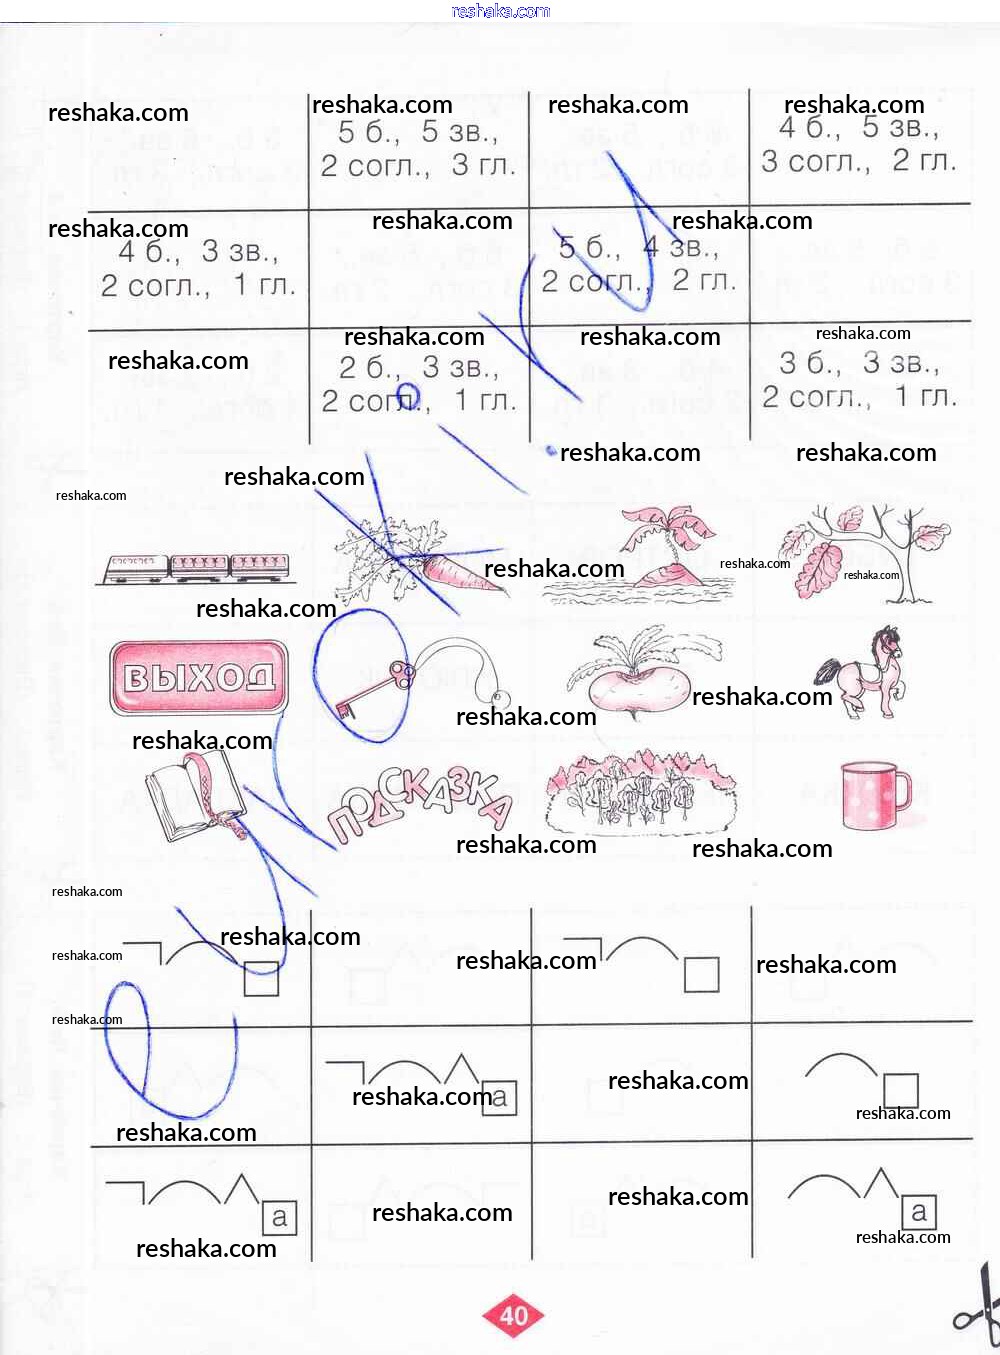 reshaka.com
reshaka.com reshaka.com reshaka.com reshaka.com
5 б., 5 зв., 4 б., 5 зв.,
2 согл., 3 гл. 3 согл., 2 гл.
reshaka.com reshaka.com reshaka.com
4 б., 3 зв., 5 б., 4 зв.,
2 согл., 1 гл. 2 согл., 2 гл.
reshaka.com reshaka.com reshaka.com reshaka.com
2 б., 3 зв., 3 б., 3 зв.,
2 согл., 1 гл. 2 согл., 1 гл.
reshaka.com reshaka.com
reshaka.com reshaka.com
reshaka.com reshaka.com reshaka.com
reshaka.com
ВЫХОД
reshaka.com reshaka.com
reshaka.com
ПОДСКАЗКА
reshaka.com reshaka.com
reshaka.com
reshaka.com reshaka.com reshaka.com reshaka.com
reshaka.com
reshaka.com а reshaka.com
reshaka.com reshaka.com
а reshaka.com reshaka.com а
reshaka.com reshaka.com
40